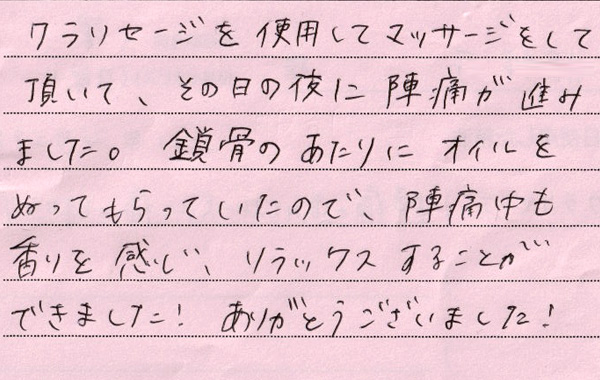 クラリセージを使用してマッサージをして
頂いて、その日の夜に陣痛が進み
ました。鎖骨のあたりにオイルを
ぬってもらっていたので、陣痛中も
香りを感じ、リラックスすることが
できました！ありがとうございました！